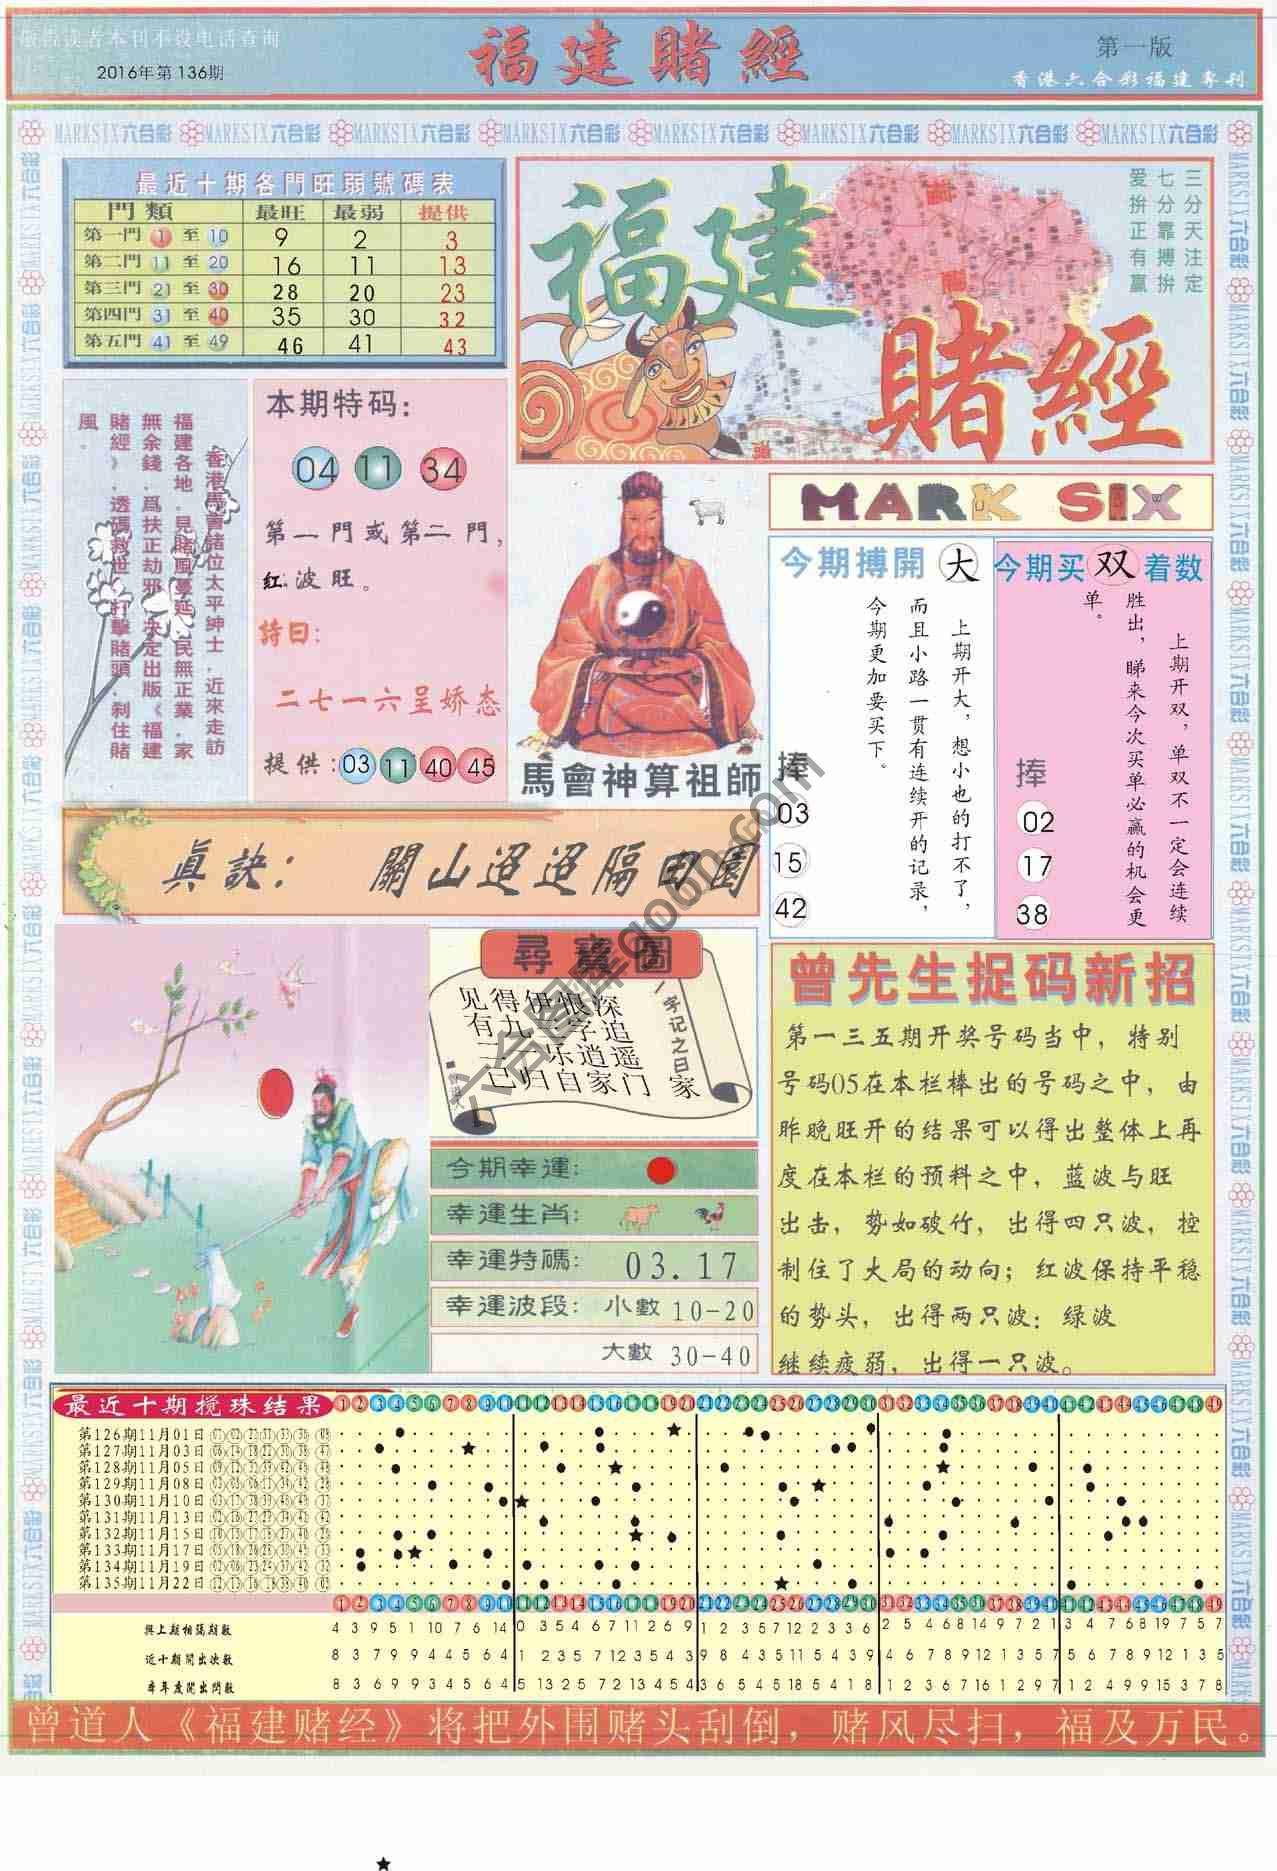 敬告读者本刊不设电话查询
2016年第136期
福建賭經
第一版
香港六合彩福建專刊
MARKSIX六合彩 MARKSIX六合彩 MARKSIX六合彩 MARKSIX六合彩 MARKSIX六合彩 MARKSIX六合彩 MARKSIX六合彩 MARKSIX六合彩
最近十期各門旺弱號碼表
門類 最旺 最弱 提供
第一門 1 至 10 9 2 3
第二門 11 至 20 16 11 13
第三門 21 至 30 28 20 23
第四門 31 至 40 35 30 32
第五門 41 至 49 46 41 43
福建
賭經
三分天注定
七分靠搏拚
爱拚正有赢
香港馬會諸位太平紳士．近來走訪
福建各地．見賭風蔓延．民無正業．家
無余錢．爲扶正劫邪．決定出版《福建
賭經》．透碼救世．打擊賭頭．刹住賭
風．
本期特码：
04 11 34
第一門或第二門，
红波旺。
詩曰：
二七一六呈娇态
提供：03 11 40 45
馬會神算祖師
MARK SIX
今期搏開 大
上期开大，想小也的打不了，
而且小路一贯有连续开的记录，
今期更加要买下。
捧
03
15
42
今期买 双 着数
上期开双，单双不一定会连续
胜出，睇来今次买单必赢的机会更
单。
捧
02
17
38
真訣： 關山迢迢隔田園
尋寶圖
见得伊狠深
有九二字追
三口乐逍遥
已归自家门
一字记之曰 家
曾道人
今期幸運：
幸運生肖：
幸運特碼： 03.17
幸運波段：小數 10-20
大數 30-40
曾先生捉码新招
第一三五期开奖号码当中，特别
号码05在本栏棒出的号码之中，由
昨晚旺开的结果可以得出整体上再
度在本栏的预料之中，蓝波与旺
出击，势如破竹，出得四只波，控
制住了大局的动向；红波保持平稳
的势头，出得两只波；绿波
继续疲弱，出得一只波。
最近十期搅珠结果
1 2 3 4 5 6 7 8 9 10 11 12 13 14 15 16 17 18 19 20 21 22 23 24 25 26 27 28 29 30 31 32 33 34 35 36 37 38 39 40 41 42 43 44 45 46 47 48 49
第126期11月01日
第127期11月03日
第128期11月05日
第129期11月08日
第130期11月10日
第131期11月13日
第132期11月15日
第133期11月17日
第134期11月19日
第135期11月22日
1 2 3 4 5 6 7 8 9 10 11 12 13 14 15 16 17 18 19 20 21 22 23 24 25 26 27 28 29 30 31 32 33 34 35 36 37 38 39 40 41 42 43 44 45 46 47 48 49
與上期相隔期數
近十期開出次數
本年度開出問數
曾道人《福建赌经》将把外围赌头刮倒，赌风尽扫，福及万民。
六合图库qoom.com